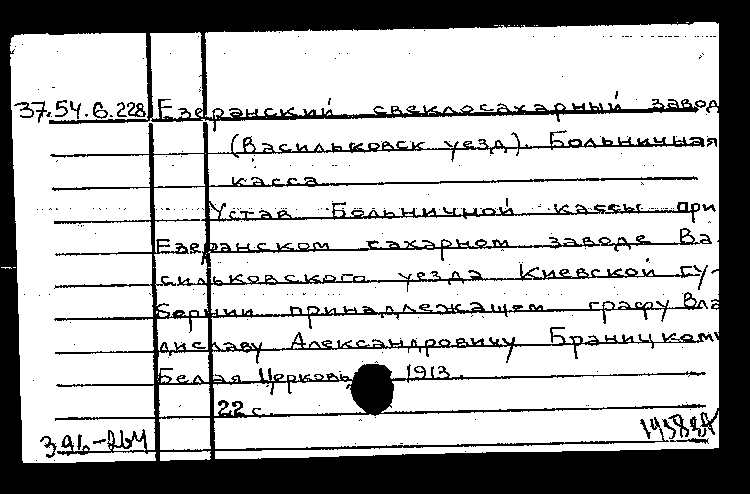 37.54.6.228 Езеранский свеклосахарный завод
(Васильковск уезд). Больничная
касса
Устав Больничной кассы при
Езеранском сахарном заводе Ва
сильковского уезда Киевской гу-
бернии принадлежащем графу Вла
диславу Александровичу Браницкому
Белая Церковь 1913.
22 с.